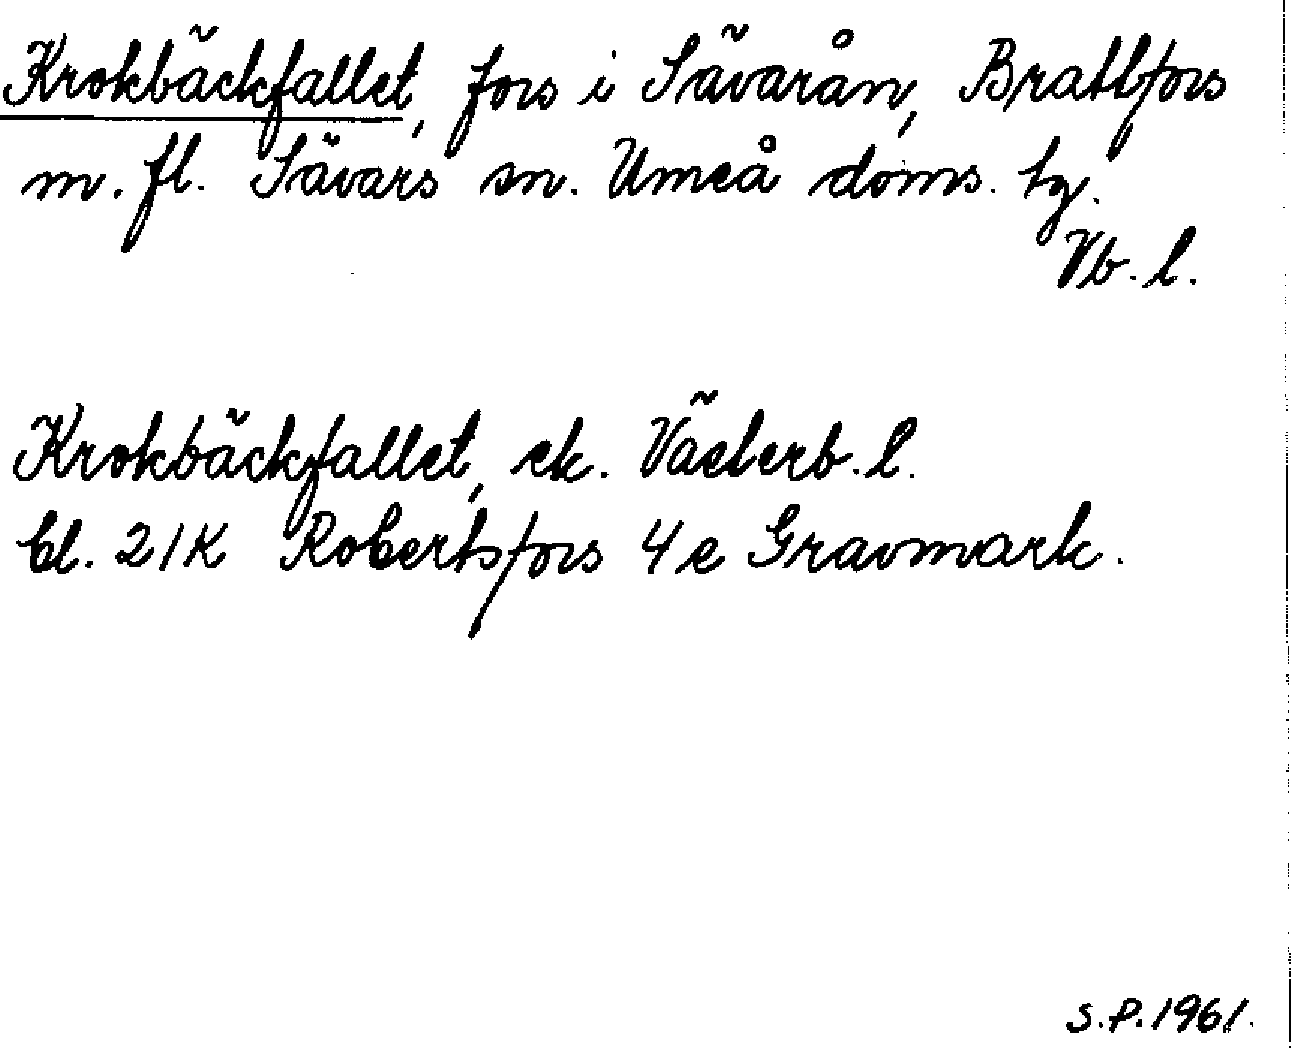 Krokbäckfallet, fors i Sävarån, Brattfors
m. fl. Sävars sn. Umeå doms. tg.
Vb. l.
Krokbäckfallet, ek. Västerb. l.
bl. 21K Robertsfors 4e Gravmark.
S.P. 1961.